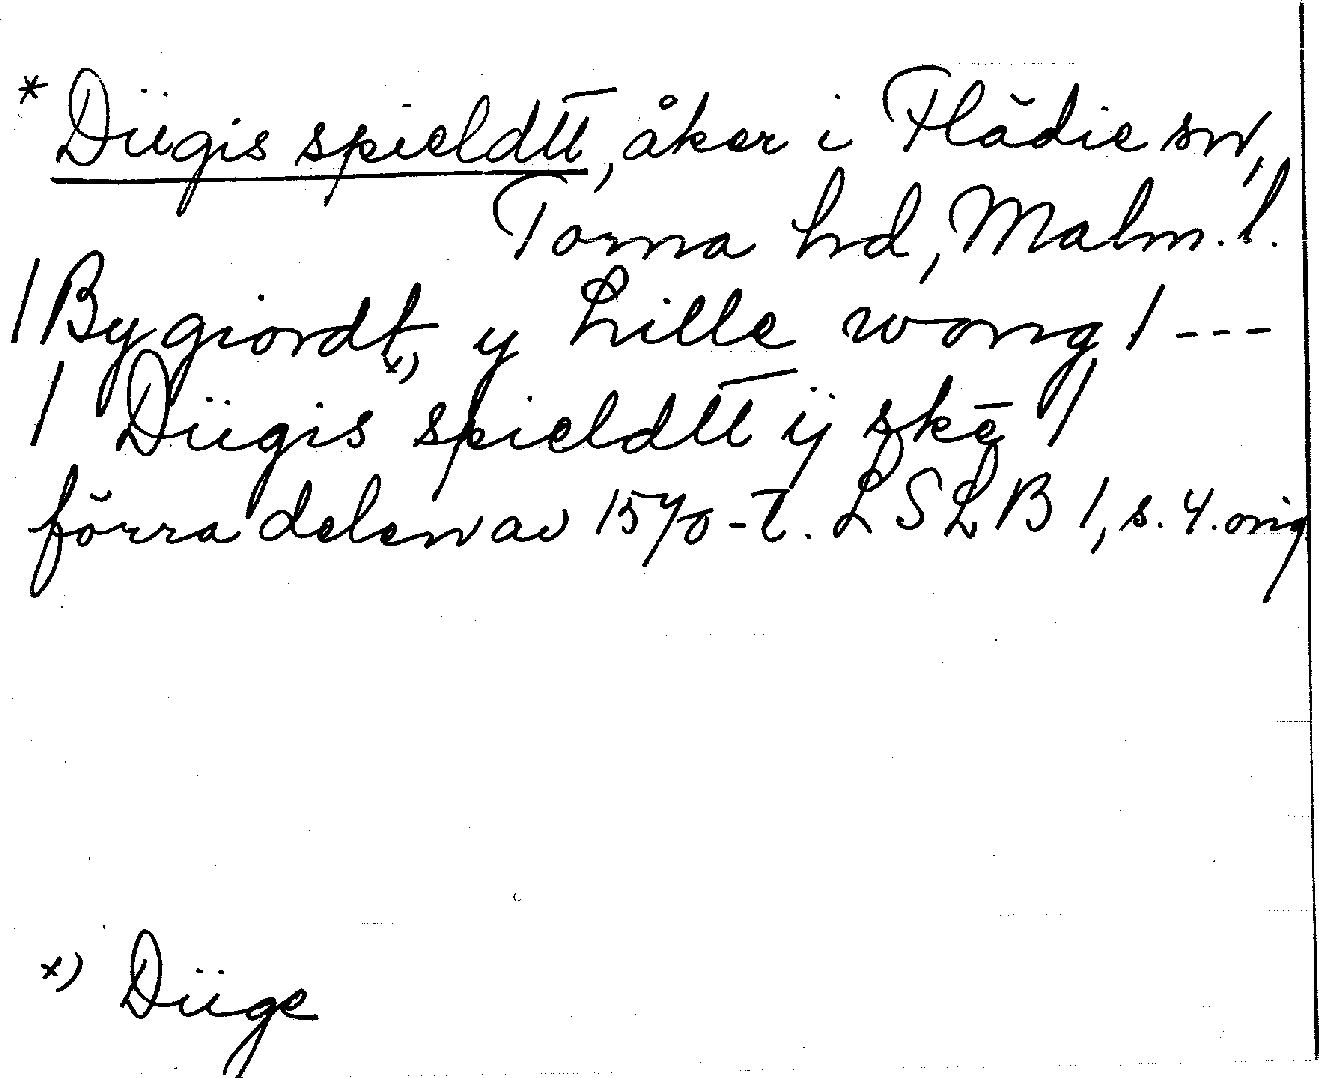 * Dügis spieldtt, åker i Flädie sn,
Torna hd, Malm. l.
/ By giordt, y Lille wong / ---
/ Dügis x) spieldtt ij skē /
förra delen av 1570-t. LSLB 1, s. 4. orig
x) Düge